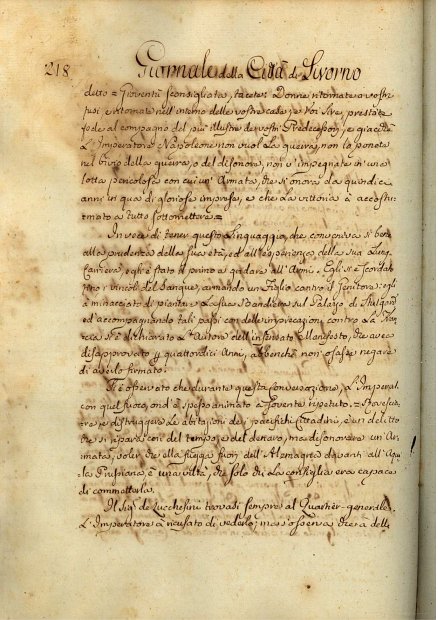 218. Giornale della Città di Livorno
detto = Gioventù sconsigliata, tacete: Donne ritornate a vostri
fusi entrate nell'interno delle vostre case; e Voi Sire, prestate
fede al compagno del più illustre de vostri Predecessori; e giacchè
L'Imperatore Napoleone non vuol La guerra, non lo ponete
nel bivio della guerra, o del disonore, non v'impegnate in una
lotta pericolosa con cui un'Armata, che si onora da quindici
anni in qua di gloriose imprese, e che La vittoria à accostu-
mato a tutto sottomettere =
In vece di tener questo Linguaggio, che conveniva sì bene
alla prudenza della sua età, ed all'esperienza della sua Lunga
Carriera, egli è stato il primo a gridare all'Armi. Egli si è scordato
fino i vincoli del Sangue, armando un Figlio contro il Genitore; egli
à minacciato di piantare La sua Bandiera sul Palazzo di
ed accompagnando tali passi con delle imprecazioni contro La Fran-
cia si è dichiarato L'Autore dell'insensato Manifesto, che aveva
disapprovato 14 quattordici Anni, abbenchè non osasse negare
di averlo firmato.
Si è osservato che durante questa conversazione, L'Imperat.
con quel fuoco, ond'è spesso animato à sovente ripetuto: =
e distruggere Le abitazioni de pacifichi Cittadini, è un delitto
che si ripara con del tempo, e del denaro, ma disonorare un'Ar-
mata, voler che ella fugga fuori dell'Alemagna davanti all'Aqui-
la Prussiana, è una viltà, che solo chi La consiglia era capace
di commetterla.
Il Sig. de Lucchesini trovasi sempre al Quartier-generale.
L'Imperatore à ricusato di vederlo; ma s'osserva che à delle